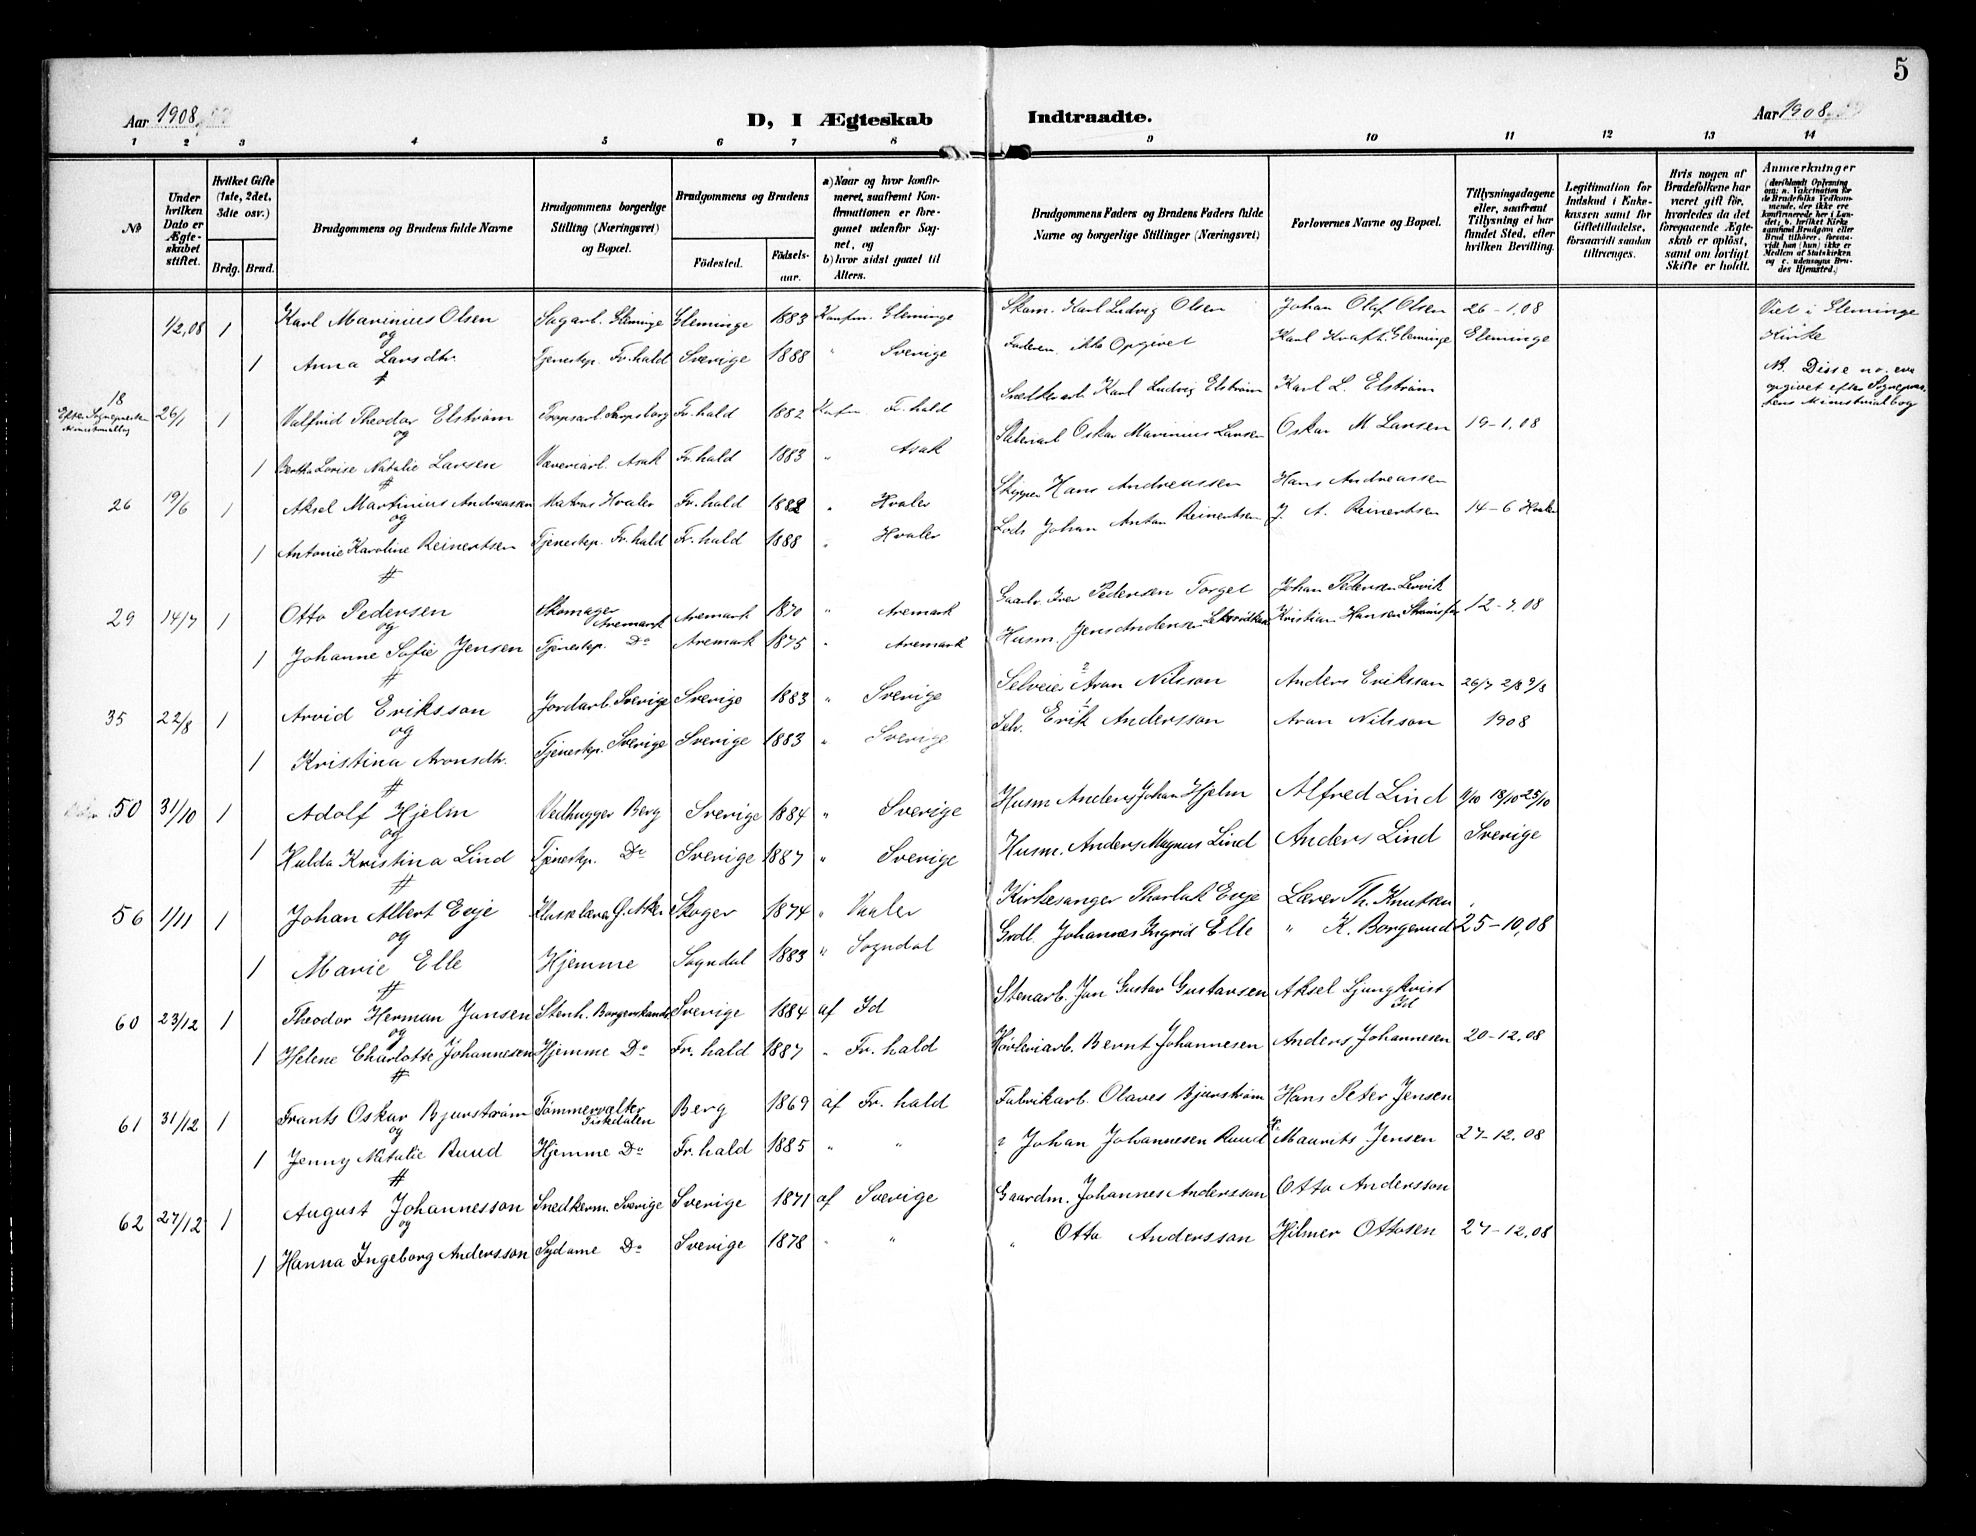 5
Aar 1908
D, I Ægteskab Indtraadte.
Aar 1908
1 2 3 4 5 6 7 8 9 10 11 12 13 14
№
Under hvilken Dato er Ægteskabet stiftet.
Hvilket Gifte (1ste, 2det, 3dte osv.)
Brdg. Brud.
Brudgommens og Brudens fulde Navne
Brudgommens borgerlige Stilling (Næringsvei) og Bopæl.
Brudgommens og Brudens
Födested. Födselsaar.
a) Naar og hvor konfirmeret, saafremt Konfirmationen er foregaaet udenfor Sognet, og
b) hvor sidst gaaet til Alters.
Brudgommens Faders og Brudens Faders fulde Navne og borgerlige Stillinger (Næringsvei)
Forlovernes Navne og Bopæl.
Tillysningsdagene eller, saafremt Tillysning ei har fundet Sted, efter hvilken Bevilling.
Legitimation for Indskud i Enkekassen samt for Giftetilladelse, forsaavidt saadan tiltrænges.
Hvis nogen af Brudefolkene har været gift för, hvorledes da det foregaaende Ægteskab er oplöst, samt om lovligt Skifte er holdt.
Anmærkninger
(deriblandt Oplysning om: a. Vakcination for de Brudefolks Vedkommende, der ikke ere konfirmerede her i Landet; b. hvilket Kirkesamfund Brudgom eller Brud tilhörer, forsaavidt han (hun) ikke er Medlem af Statskirken og c. udensogns Brudes Hjemsted.)
1/2,08 1 Karl Marinius Olsen Sagarb. Gleminge Gleminge 1883 Konfm. Gleminge Skom. Karl Ludvig Olsen Johan Olaf Olsen 26-1.08 Viet i Gleminge
og Karl Kraft. Gleminge Gleminge Kirke
1 Anna Larsdtr. Tjenestep. Fr.hald Sverige 1888 " Sverige Faderen ikke Opgivet
NB. Disse no. ere opgivet efter Sognepræstens Ministerialbog
18
Efter Sognepræsten Ministerialbog 26/1 1 Valfrid Theodor Elstrøm Fr.hald 1882 Konfm Fr.hald Karl Ludvig Elstrøm Karl L. Elstrøm
og Oskar Marinius Larsen Oskar M Larsen 19-1.08
1 Bertha Lovise Natalie Larsen Væveriarb. Asak Fr.hald 1883 " Asak
26 19/6 1 Aksel Martinius Andreassen Matros Hvaler Fr.hald 1882 " Hvaler Skipper Hans Andreassen Hans Andreassen
og Lods Johan Anton Reinertsen J. A. Reinertsen 14-6 Hvaler
1 Antonie Karoline Reinertsen Tjenestep. Fr.hald Fr.hald 1888 " Hvaler
29 14/7 1 Otto Pedersen Skomager Aremark Aremark 1870 " Aremark Gaarbr. Iver Pedersen Torget Johan Pedersen Lervik
og Husm. Jens Andersen Kristian Hansen 12-7.08
1 Johanne Sofie Jensen Tjenestep. Do Aremark 1875 " Aremark
35 22/8 1 Arvid Eriksson Jordarb. Sverige Sverige 1883 " Sverige Selveier Aron Nilsson Anders Eriksson 26/7 2/8 9/8
og Selv. Erik Andersson Aron Nilsson 1908
1 Kristina Aronsdtr. Tjenestep. Sverige Sverige 1883 " Sverige
50 31/10 1 Adolf Hjelm Vedhugger Berg Sverige 1884 " Sverige Husm Anders Johan Hjelm Alfred Lind 11/10 18/10 25/10
og
1 Hulda Kristina Lind Tjenestp. Do Sverige 1887 " Sverige Husm. Anders Magnus Lind Anders Lind Sverige
56 1/11 1 Johan Albert Evje Skoger 1874 " Vaaler Kirkesanger Thorlak Evje Lærer Th. Knutsen
og Grdl. Johannes Ingrid Elle " K. Borgerud 25-10,08
1 Marie Elle Hjemme Sogndal 1883 " Sogndal
60 23/12 1 Theodor Herman Jansen Stenh. Sverige 1884 af Id Stenarb. Jan Gustav Gustavsen Aksel Ljungkvist Id
og
1 Helene Charlotte Johannesen Hjemme Do Fr.hald 1887 " Fr.hald Høvleriarb. Bernt Johannesen Anders Johannesen 20-12,08
61 31/12 1 Frants Oskar Bjurstrøm Tømmervalter Tistedalen Berg 1869 af Fr.hald Fabrikarb. Olaves Bjurstrøm Hans Peter Jensen
og
1 Jenny Natalie Ruud Hjemme Do Fr.hald 1885 " " Johan Johannesen Ruud Maurits Jensen 27-12.08
62 27/12 1 August Johannesson Snedkerm. Sverige Sverige 1871 af Sverige Gaardm. Johannes Andersson Otto Andersson
og
1 Hanna Ingeborg Andersson Sydame Do Sverige 1878 " " " Otto Andersson Hilmer Ottosen 27-12,08